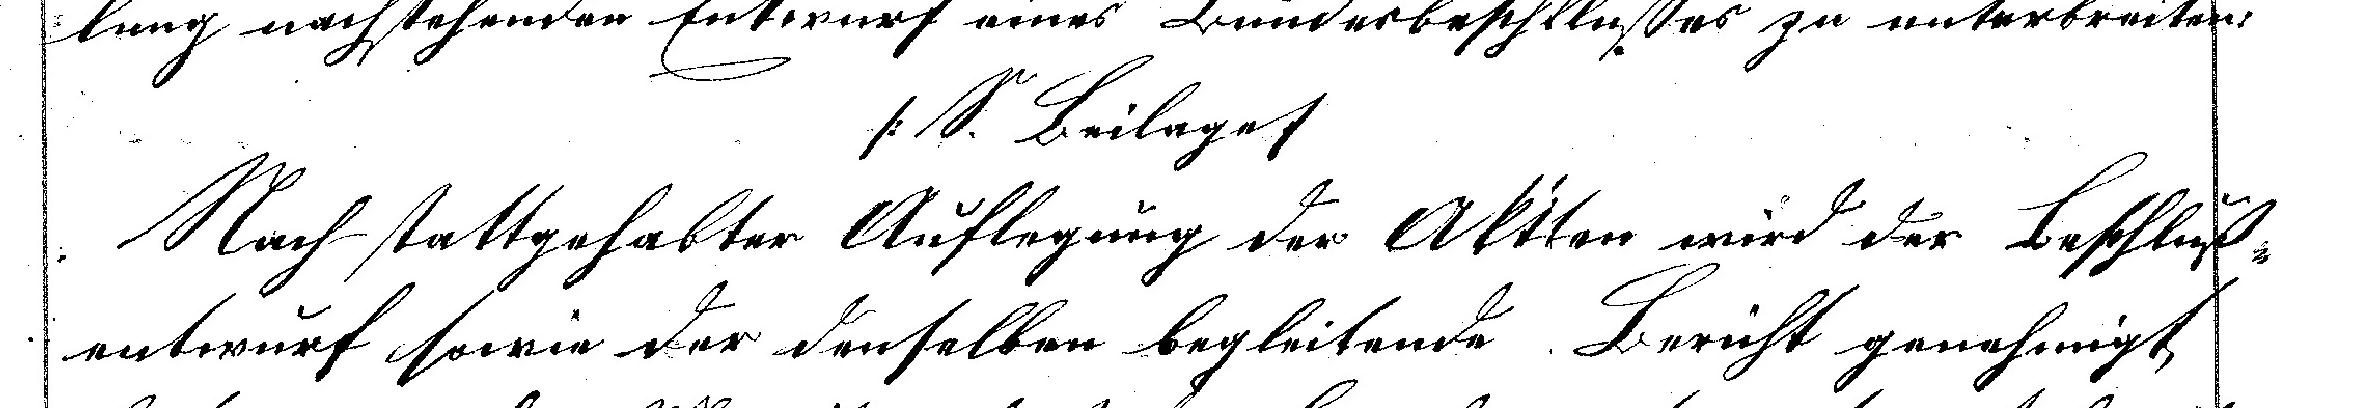 lung nachstehenden Entwurf eines Bundesbeschlusses zu unterbreiten:
/: S. Beilage /
Nach stattgehabter Auflegung der Akten wird der Beschluß-
entwurf sowie der denselben begleitende Bericht genehmigt